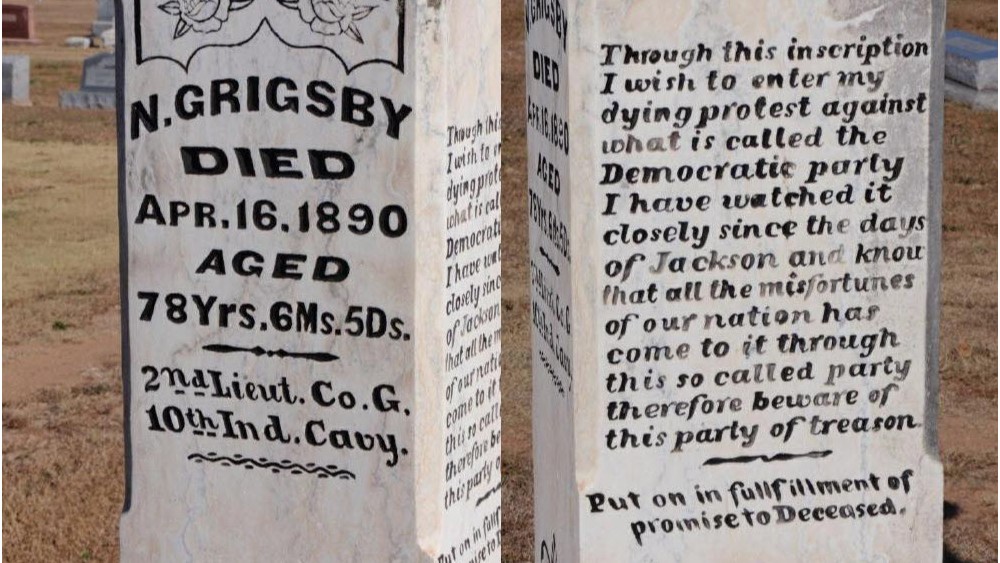 N. GRIGSBY
DIED
APR. 16. 1890
AGED
78Yrs. 6Ms. 5Ds.
2nd Lieut. Co. G.
10th Ind. Cavy.
Through this
I wish to
dying
what is
Democrat
I have
closely sinc
of Jackson
that all the
of our nati
come to it
this so calle
therefore be
this party o
Put on in fullf
to
GRIGSBY
DIED
APR. 16. 1890
AGED
78Yrs. 6Ms. 5Ds.
Through this inscription
I wish to enter my
dying protest against
what is called the
Democratic party
I have watched it
closely since the days
of Jackson and know
that all the misfortunes
of our nation has
come to it through
this so called party
therefore beware of
this party of treason.
Put on in fullfillment of
promise to Deceased.